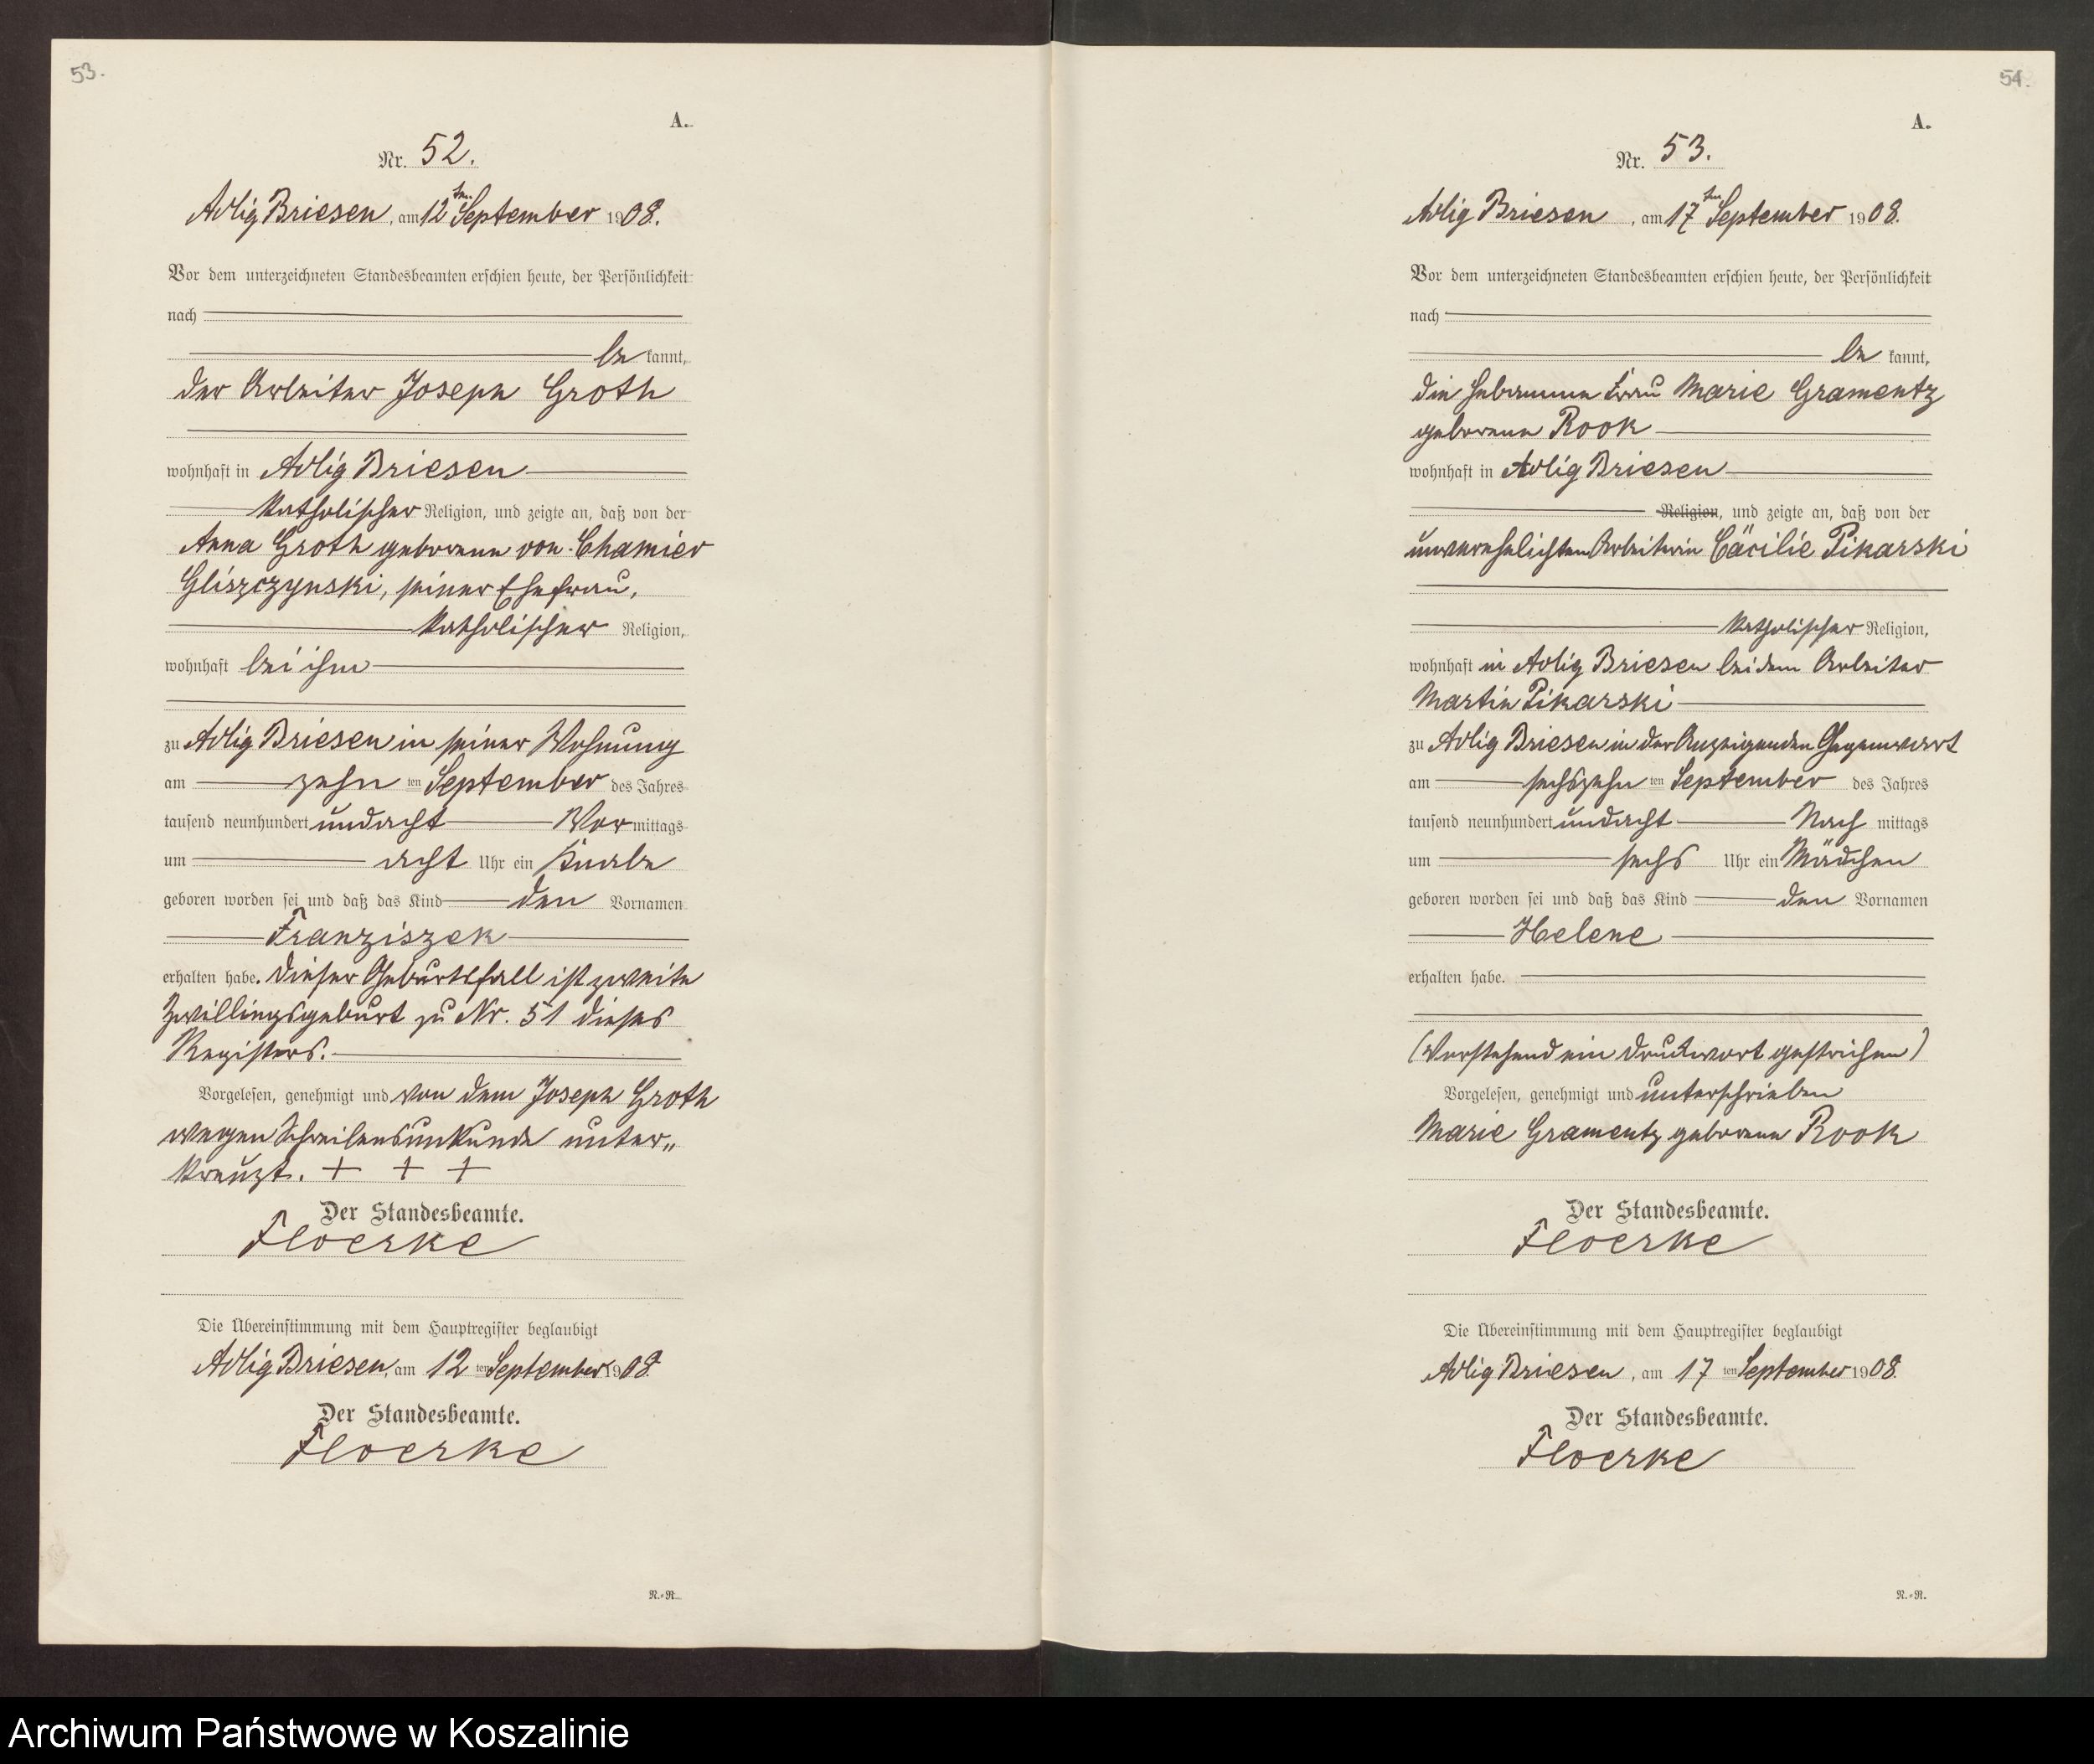 53.
A.
Nr. 52.
Adlig Briesen, am 12ten September 1908.
Vor dem unterzeichneten Standesbeamten erschien heute, der Persönlichkeit
nach
be kannt,
der Arbeiter Joseph Groth
wohnhaft in Adlig Briesen
katholischer Religion, und zeigte an, daß von der
Anna Groth geborene von Chamier
Gliszczynski, seiner Ehefrau,
katholischer Religion,
wohnhaft bei ihm
zu Adlig Briesen in seiner Wohnung
am zehn ten September des Jahres
tausend neunhundert und acht Vor mittags
um acht Uhr ein Knabe
geboren worden sei und daß das Kind den Vornamen
Franziszek
erhalten habe. Dieser Geburtsfall ist zweite
Zwillingsgeburt zu Nr. 51 dieses
Registers.
Vorgelesen, genehmigt und von dem Joseph Groth
wegen Schreibensunkunde unter„
kreuzt. + + +
Der Standesbeamte.
Floerke
Die Übereinstimmung mit dem Hauptregister beglaubigt
Adlig Briesen, am 12 ten September 1908.
Der Standesbeamte.
Floerke
N.=R.
54.
A.
Nr. 53.
Adlig Briesen, am 17ten September 1908.
Vor dem unterzeichneten Standesbeamten erschien heute, der Persönlichkeit
nach
be kannt,
die Hebamme Frau Marie Gramentz
geborene Rook
wohnhaft in Adlig Briesen
Religion, und zeigte an, daß von der
unverehelichten Arbeiterin Cäcilie Pikarski
katholischer Religion,
wohnhaft in Adlig Briesen bei dem Arbeiter
Martin Pikarski
zu Adlig Briesen in der Anzeigenden Gegenwart
am sechszehn ten September des Jahres
tausend neunhundert und acht Nach mittags
um sechs Uhr ein Mädchen
geboren worden sei und daß das Kind den Vornamen
Helene
erhalten habe.
(Vorstehend ein Druckwort gestrichen)
Vorgelesen, genehmigt und unterschrieben
Marie Gramentz geborene Rook
Der Standesbeamte.
Floerke
Die Übereinstimmung mit dem Hauptregister beglaubigt
Adlig Briesen, am 17 ten September 1908.
Der Standesbeamte.
Floerke
N.=R.
Archiwum Państwowe w Koszalinie